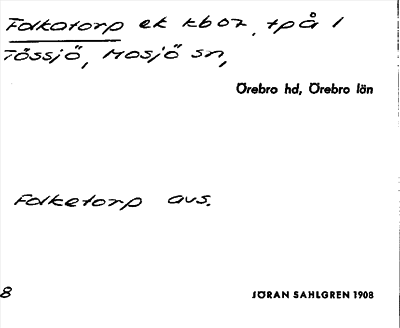 Folkatorp ek kb07, tpå 1
Tössjö, Mosjö sn,
Örebro hd, Örebro län
Folketorp avs.
8
JÖRAN SAHLGREN 1908